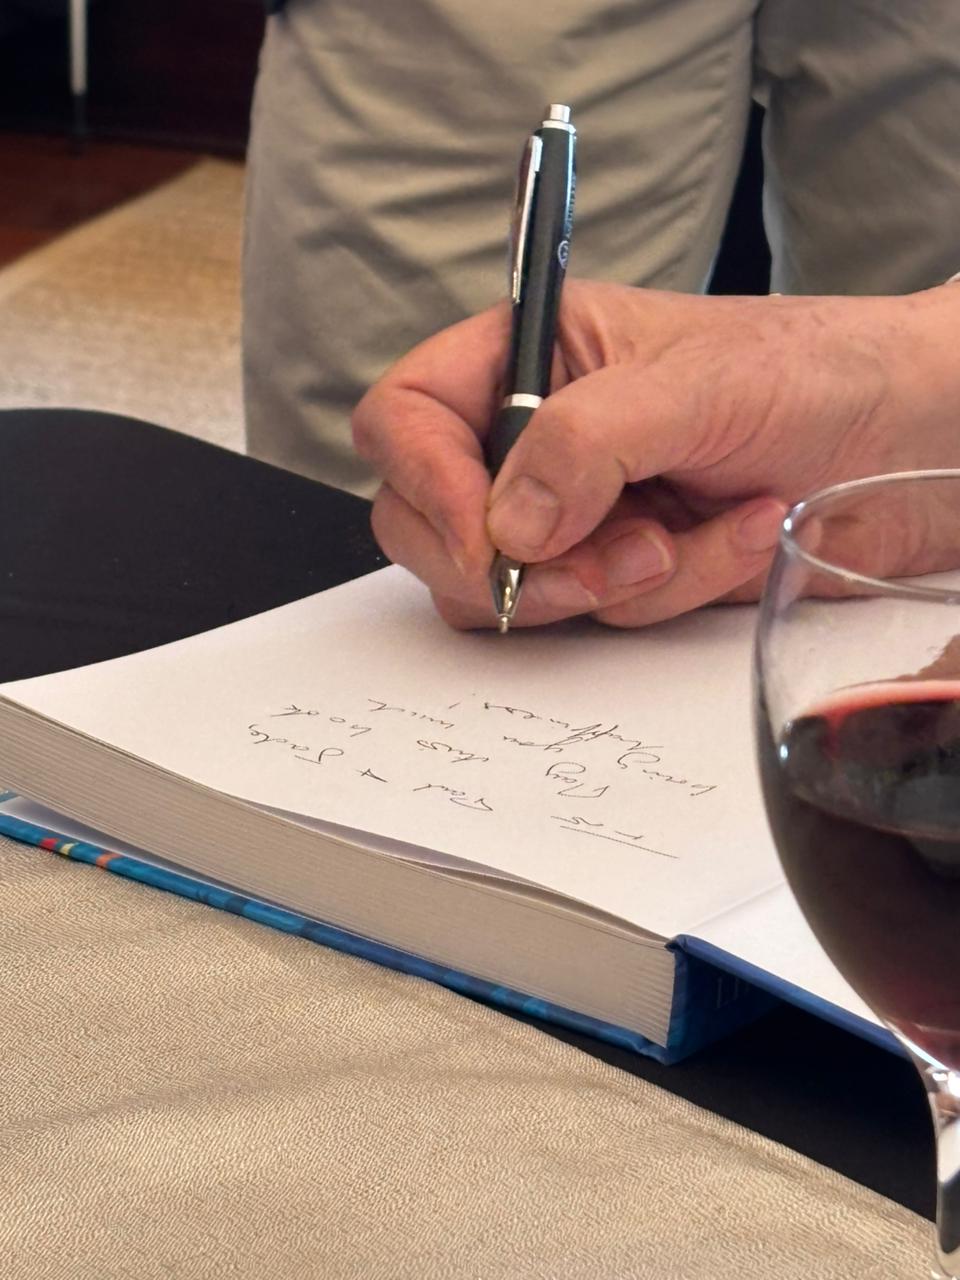 Paul + Jade,
May this book
bring you much
happiness!